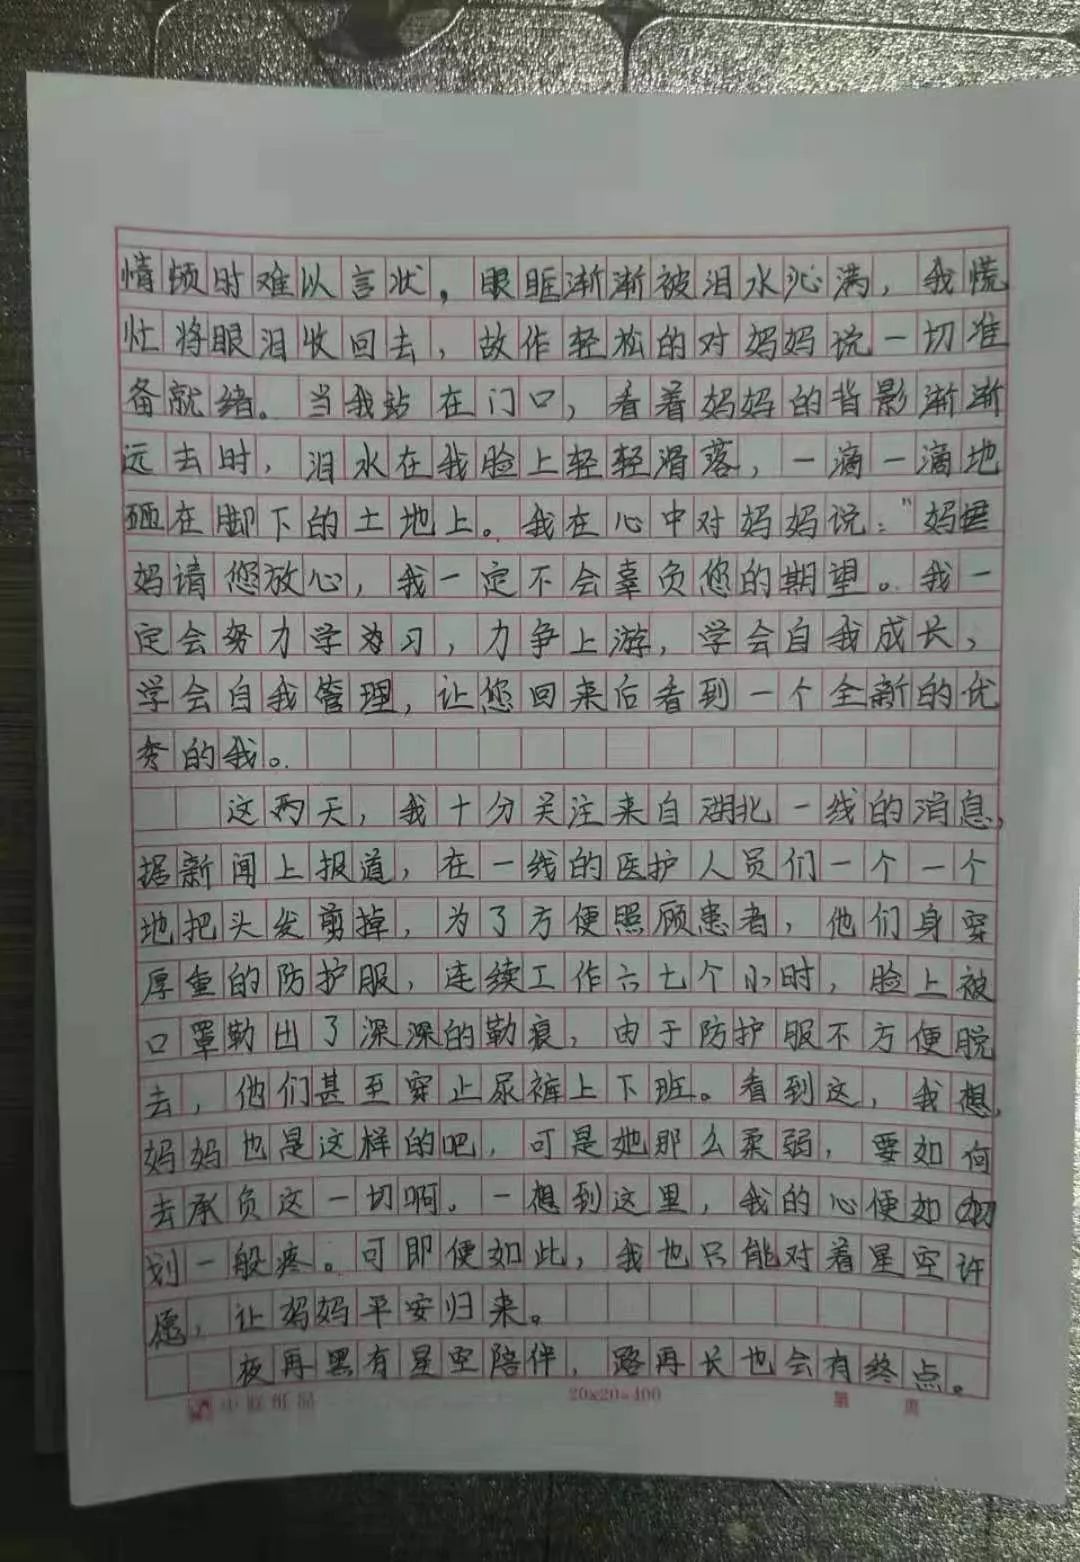 情顿时难以言状，眼眶渐渐被泪水沁满，我慌
忙将眼泪收回去，故作轻松的对妈妈说一切准
备就绪。当我站在门口，看着妈妈的背影渐渐
远去时，泪水在我脸上轻轻滑落，一滴一滴地
砸在脚下的土地上。我在心中对妈妈说：“妈
妈请您放心，我一定不会辜负您的期望。我一
定会努力学习，力争上游，学会自我成长，
学会自我管理，让您回来后看到一个全新的优
秀的我。
这两天，我十分关注来自湖北一线的消息，
据新闻上报道，在一线的医护人员们一个一个
地把头发剪掉，为了方便照顾患者，他们身穿
厚重的防护服，连续工作六七个小时，脸上被
口罩勒出了深深的勒痕，由于防护服不方便脱
去，他们甚至穿止尿裤上下班。看到这，我想，
妈妈也是这样的吧，可是她那么柔弱，要如何
去承负这一切啊。一想到这里，我的心便如
划一般疼。可即便如此，我也只能对着星空许
愿，让妈妈平安归来。
夜再黑有星空陪伴，路再长也会有终点。
20×20=400
第 页